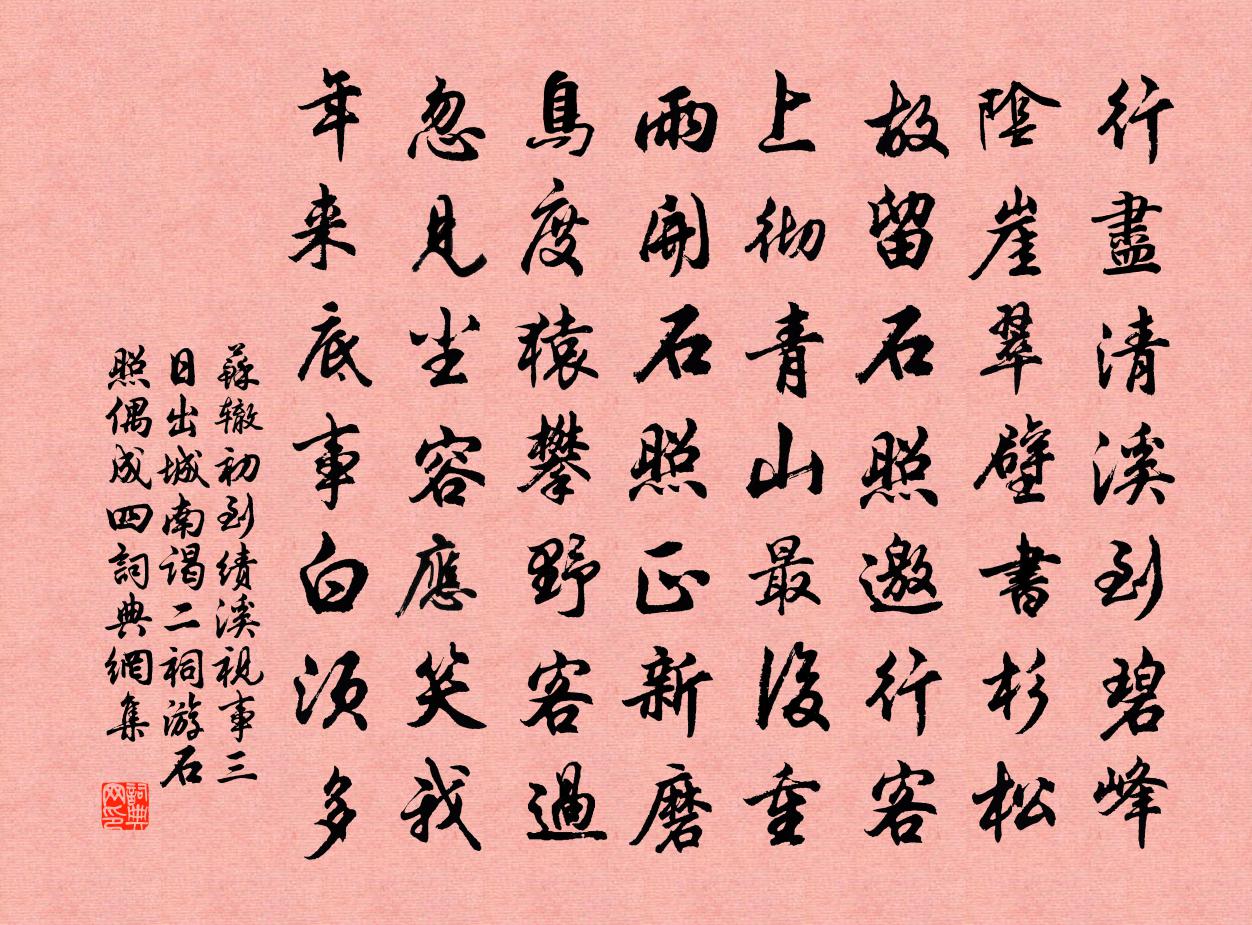 行盡清溪到碧峰
陰崖翠壁書杉松
故留石照邀行客
上徹青山最後重
雨開石照正新磨
鳥度猿攀野客過
忽見塵容應笑我
年来底事白須多
蘇辙初到绩溪視事三
日出城南谒二祠游石
照偶成四詞典網集
詞典
网印